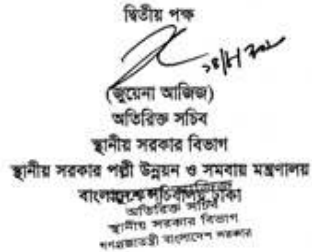 দ্বিতীয় পক্ষ
(জুয়েনা আজিজ)
অতিরিক্ত সচিব
স্থানীয় সরকার বিভাগ
স্থানীয় সরকার পল্লী উন্নয়ন ও সমবায় মন্ত্রণালয়
বাংলাদেশ সচিবালয় ঢাকা
অতিরিক্ত সচিব
স্থানীয় সরকার বিভাগ
গণপ্রজাতন্ত্রী বাংলাদেশ সরকার